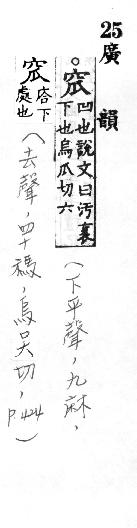 25廣韻
窊 凹也說文曰汚衺
下也烏瓜切六
（下平聲，九麻，
窊 下
處也
（去聲，四十禡，烏吳切，P.424）